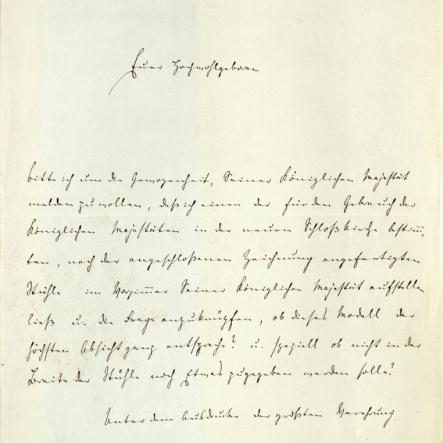 Euer Hochwohlgeboren
bitte ich um die Gewogenheit, Seiner Königlichen Majestät
melden zu wollen, daß ich einen der für den Gebrauch der
Königlichen Majestäten in der neuen Schloßkirche bestim̄-
ten, nach der angeschloßenen Zeichnung angefertigten
Stühle im Vorzimmer Seiner Königlichen Majestät aufstellen
ließ u. die Frage anzuknüpfen, ob dieses Modell der
höchsten Absicht ganz entspreche? u. speziell ob nicht in der
Breite der Stühle noch Etwas zugegeben werden solle?
Unter dem Ausdrucke der größten Verehrung